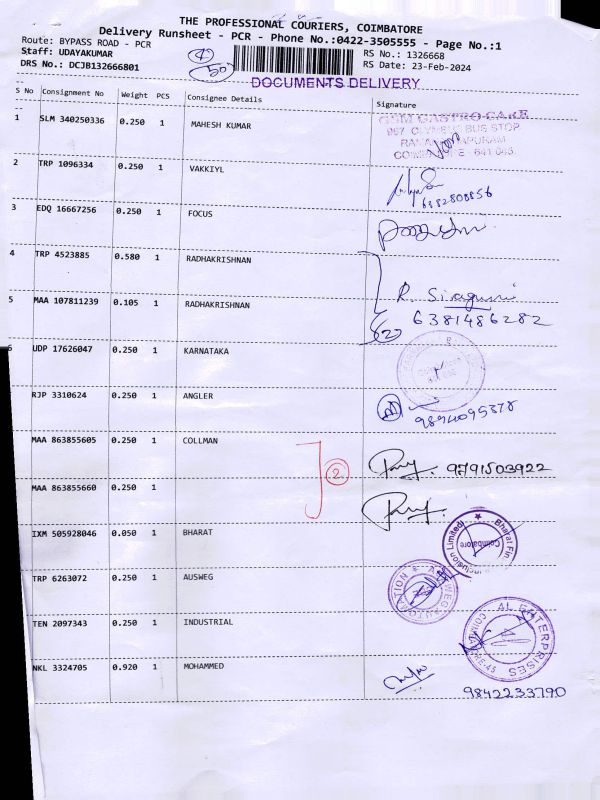 THE PROFESSIONAL COURIERS, COIMBATORE
Delivery Runsheet - PCR - Phone No.:0422-3505555 - Page No.:1
Route: BYPASS ROAD - PCR
RS No.: 1326668
Staff: UDAYAKUMAR
RS Date: 23-Feb-2024
DRS No.: DCJB132666801
50
DOCUMENTS DELIVERY
S No Consignment No Weight PCS Consignee Details Signature
1 SLM 340250336 0.250 1 MAHESH KUMAR
GEM GASTRO CARE
967 BUS STOP
COIMBATORE - 641 045.
2 TRP 1096334 0.250 1 VAKKIYL
6382808856
3 EDQ 16667256 0.250 1 FOCUS
4 TRP 4523885 0.580 1 RADHAKRISHNAN
5 MAA 107811239 0.105 1 RADHAKRISHNAN
R. 
6381486282
6 UDP 17626047 0.250 1 KARNATAKA
RJP 3310624 0.250 1 ANGLER
9894095378
MAA 863855605 0.250 1 COLLMAN
2
9791503922
MAA 863855660 0.250 1
IXM 505928046 0.050 1 BHARAT
Bharat Fin Inclusion Limited
Coimbatore
TRP 6263072 0.250 1 AUSWEG
TEN 2097343 0.250 1 INDUSTRIAL
AL ENTERPRISES
NKL 3324705 0.920 1 MOHAMMED
9842233790